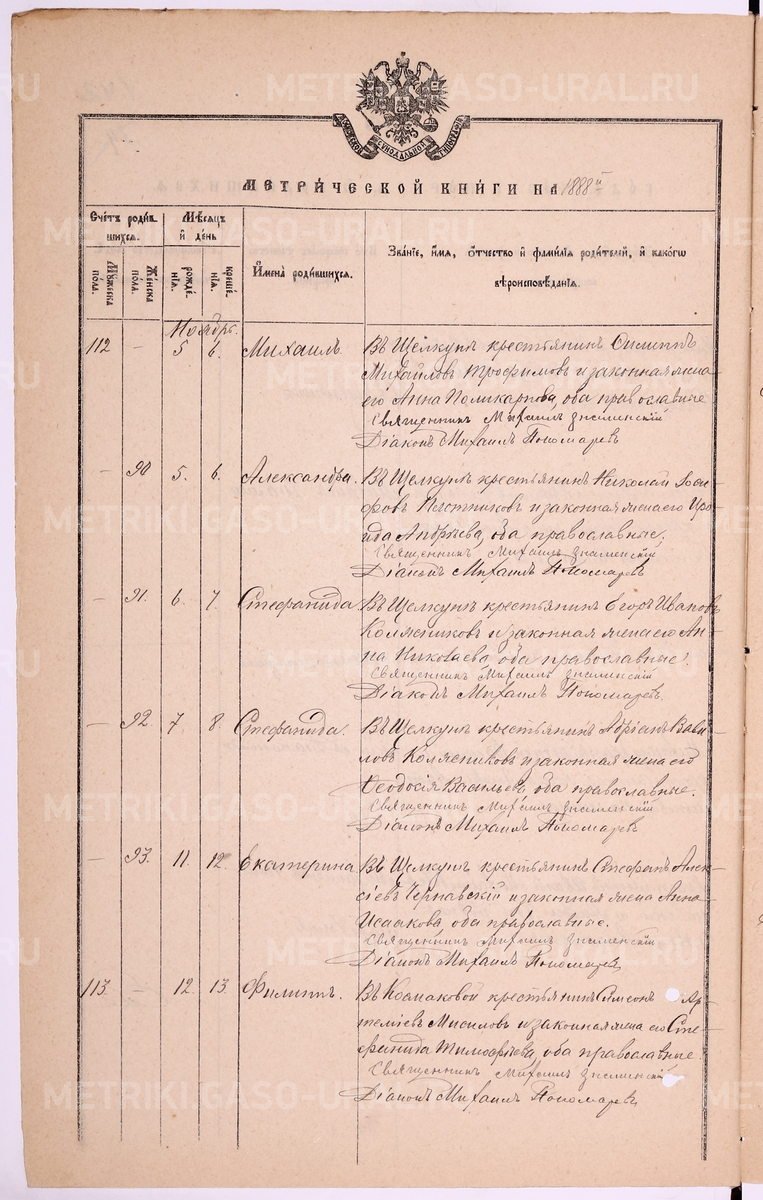 МЕТРИЧЕСКОЙ КНИГИ НА 1888й
Счетъ родив-
шихся.
Мужеска
пола.
Женска
пола.
Мѣсяцъ
и день
рожде-
нія.
креще-
нія.
Имена родившихся.
Званіе, имя, отчество и фамилія родителей, и какого
вѣроисповѣданія.
Ноябрь.
112 — 5 6. Михаилъ. Въ Щелкунѣ крестьянинъ Филиппъ
Михайловъ Трофимовъ и законная жена
его Анна Поликарпова, оба православные
Священникъ Михаилъ Знаменскій
Діаконъ Михаилъ Пономаревъ
— 90 5. 6. Александра. Въ Щелкунѣ крестьянинъ Николай Іоси-
фовъ Плотниковъ и законная жена его Иро-
ида Андреева, оба православные.
Священникъ Михаилъ Знаменскій
Діаконъ Михаилъ Пономаревъ
— 91. 6. 7. Стефанида Въ Щелкунѣ крестьянинъ Егоръ Ивановъ
Колясниковъ и законная жена его Ан-
на Николаева, оба православные.
Священникъ Михаилъ Знаменскій
Діаконъ Михаилъ Пономаревъ.
— 92. 7. 8. Стефанида. Въ Щелкунѣ крестьянинъ Адріанъ Вави-
ловъ Колясниковъ и законная жена его
Ѳеодосія Васильева, оба православные.
Священникъ Михаилъ Знаменскій
Діаконъ Михаилъ Пономаревъ
— 93. 11. 12. Екатерина Въ Щелкунѣ крестьянинъ Стефанъ Алек-
сіевъ Чернавскій и законная жена Анна
Исаакова, оба православные.
Священникъ Михаилъ Знаменскій
Діаконъ Михаилъ Пономаревъ
113. — 12. 13. Филиппъ. Въ Космаковой крестьянинъ Симеонъ Ар-
теміевъ и законная жена его Сте-
фанида Тимофѣева, оба православные.
Священникъ Михаилъ Знаменскій
Діаконъ Михаилъ Пономаревъ
METRIKI.GASO-URAL.RU